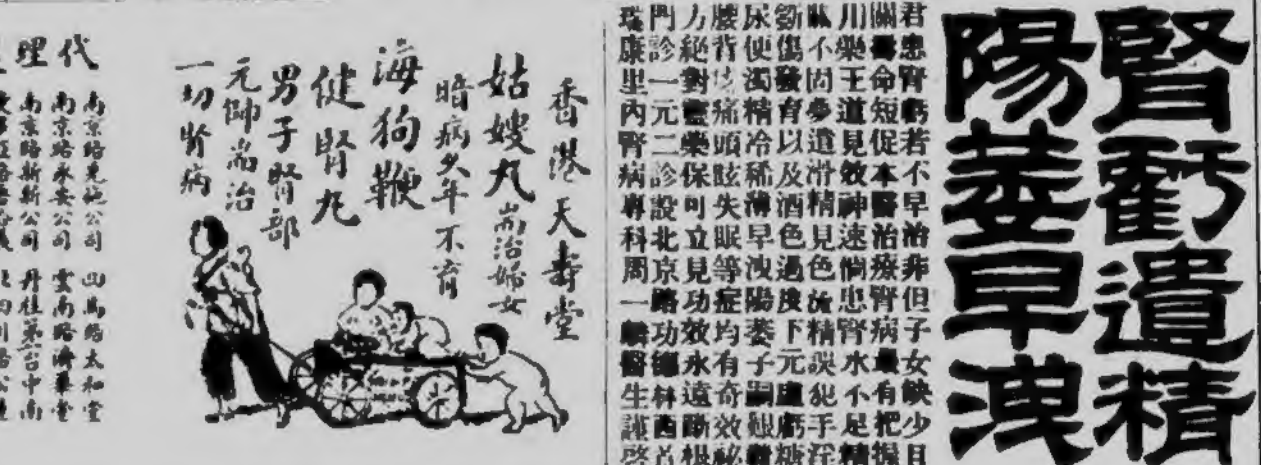 腎虧遺精
陽萎早洩
君患腎虧若不早治非但子女缺少且
關命短促本醫治療腎病最有把握
川藥王道見效神速倘患腎水不足精
不固夢遺滑精見色流精誤犯手淫
傷發育以及酒色過度下元虛虧糖
尿便濁精冷稀薄早洩陽萎子嗣艱難
腰背痛頭眩失眠等症均有奇效祕
方絕對靈藥保可立見功效永遠斷根
門診一元二診設北京路功德林西首
瑞康里內腎病專科周一麟醫生謹啓
香港天壽堂
姑嫂丸耑治婦女
暗病久年不育
海狗鞭
健腎丸
男子腎部
元帥耑治
一切腎病
代理
南京路先施公司 四馬路太和堂
南京路永安公司 雲南路濟華堂
南京路新新公司 丹桂第一台中南